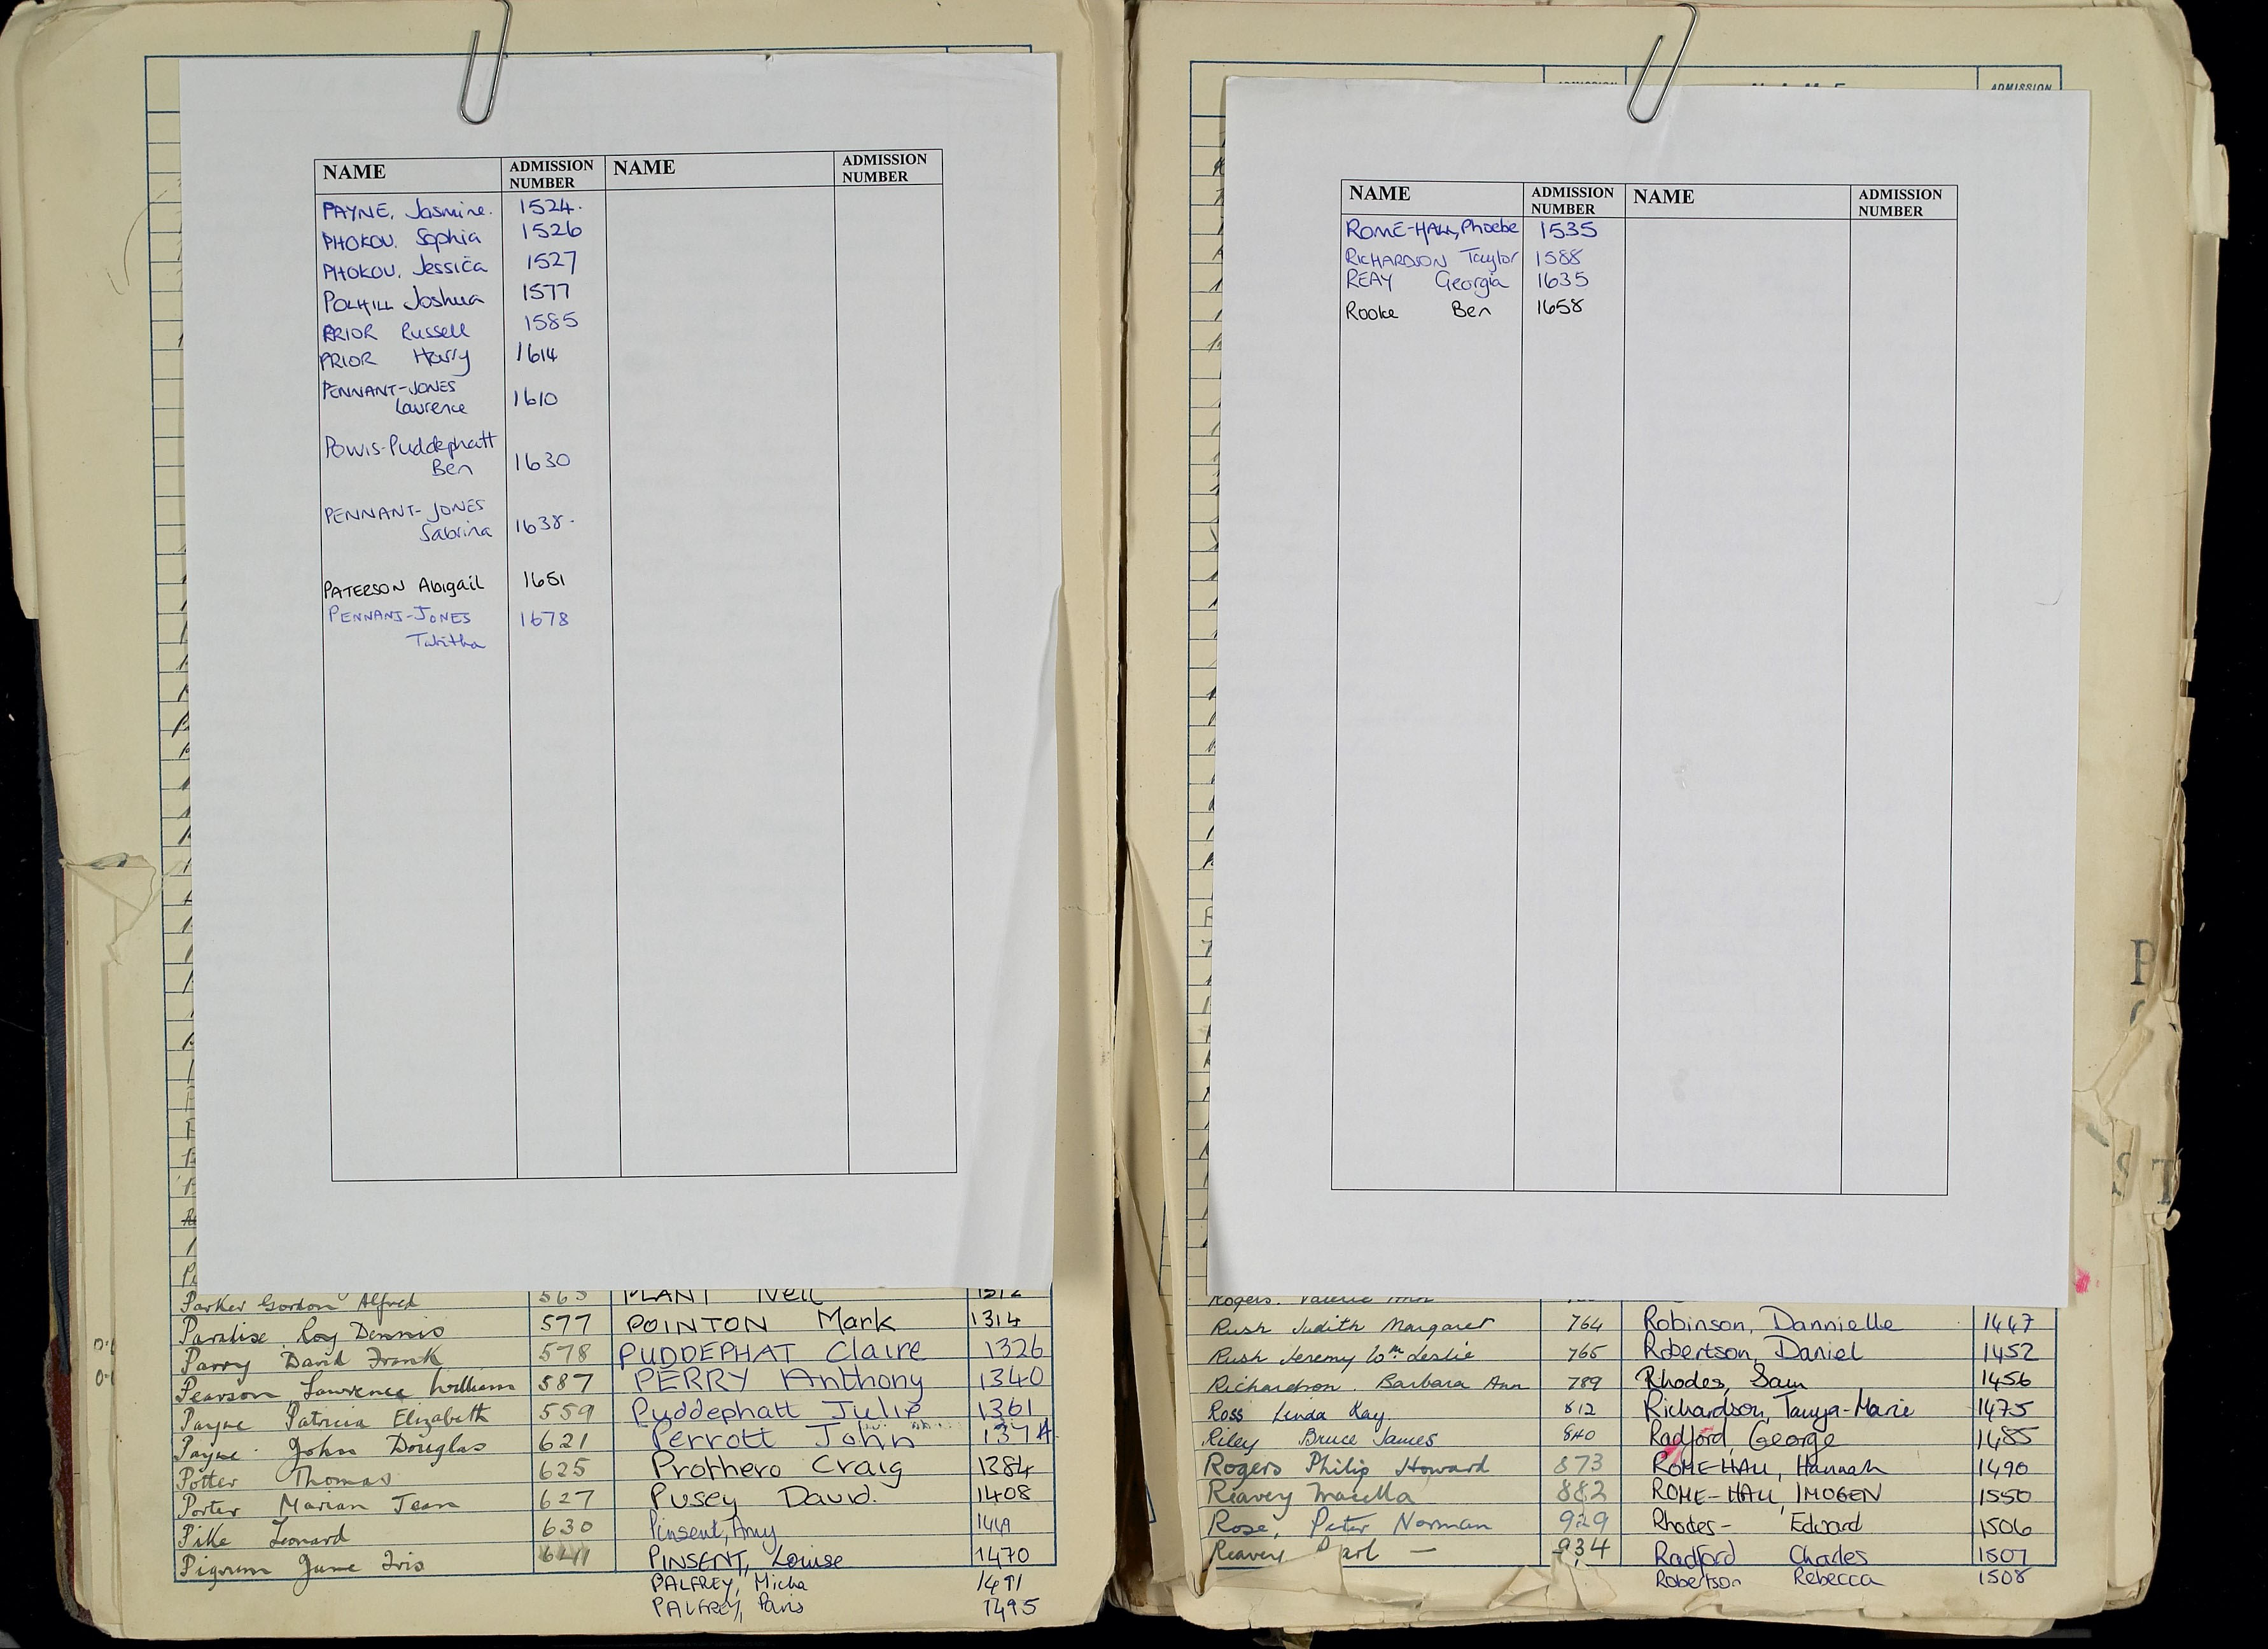 NAME ADMISSION NUMBER NAME ADMISSION NUMBER
PAYNE, Jasmine. 1524.
PHOKOU. Sophia 1526
PHOKOU. Jessica 1527
POLHILL Joshua 1577
PRIOR Russell 1585
PRIOR Harry 1614
PENNANT-JONES
Laurence 1610
Powis-Puddephatt
Ben 1630
PENNANT-JONES
Sabrina 1638.
PATERSON Abigail 1651
PENNANT-JONES 1678
Tabitha
Parker Gordon Alfred 563 PLANT Neil 1312
Paradise Roy Dennis 577 POINTON Mark 1314
Parry David Frank 578 PUDDEPHAT Claire 1326
Pearson Lawrence William 587 PERRY Anthony 1340
Payne Patricia Elizabeth 559 Puddephatt Julie 1361
Payne John Douglas 621 Perrott John 1374
Potter Thomas 625 Prothero Craig 1384
Porter Marian Jean 627 Pusey David. 1408
Pike Leonard 630 Pinsent, Amy 1449
Pigrum June Iris 641 PINSENT, Louise 1470
PALFREY, Micha 1491
PALFREY, Paris 1495
ADMISSION
NAME ADMISSION NUMBER NAME ADMISSION NUMBER
ROME-HALL, Phoebe 1535
RICHARDSON Taylor 1588
REAY Georgia 1635
Rooke Ben 1658
Rogers. Valerie Ann
Rush Judith Margaret 764 Robinson, Dannielle 1447
Rush Jeremy Wm Leslie 765 Robertson, Daniel 1452
Richardson. Barbara Ann 789 Rhodes, Sam 1456
Ross Linda Kay. 812 Richardson, Tanya-Marie 1475
Riley Bruce James 840 Radford, George 1485
Rogers Philip Howard 873 ROME-HALL, Hannah 1490
Reavey Marella 882 ROME-HALL, IMOGEN 1550
Rose, Peter Norman 929 Rhodes- Edward 1506
Reavey Carl — 934 Radford Charles 1507
Robertson Rebecca 1508